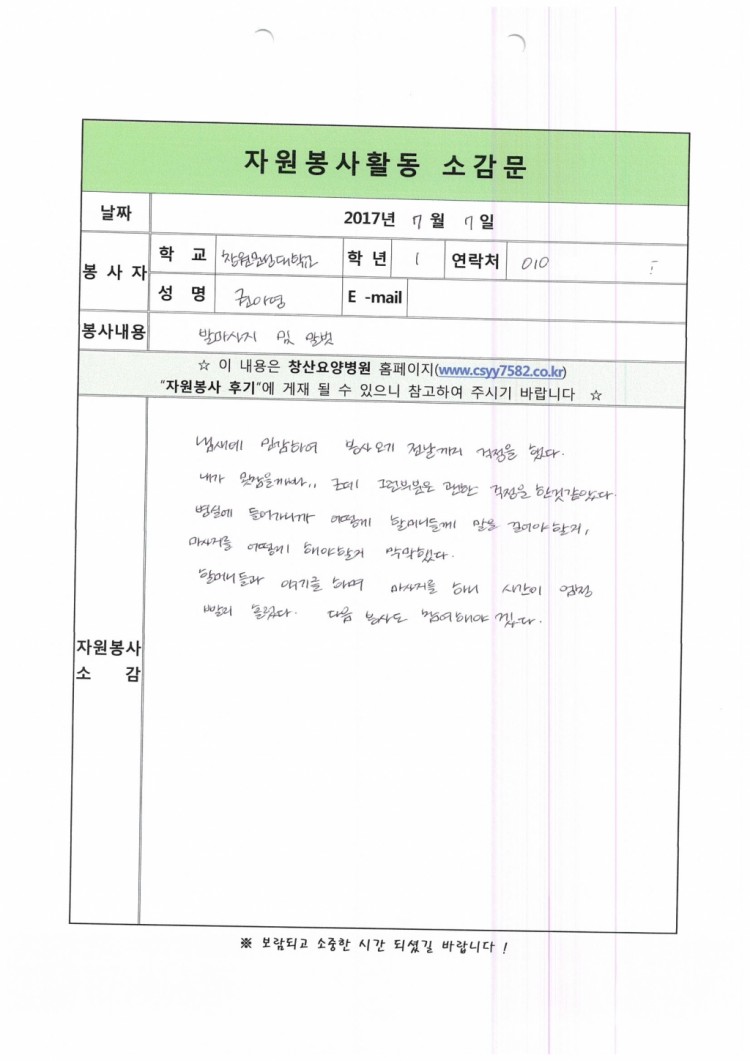 자원봉사활동 소감문
날짜 2017년 7월 7일
봉사자 학 교 창원문성대학교 학 년 1 연락처 010
성 명 권아영 E -mail
봉사내용 발마사지 및 말벗
☆ 이 내용은 창산요양병원 홈페이지(www.csyy7582.co.kr)
"자원봉사 후기"에 게재 될 수 있으니 참고하여 주시기 바랍니다 ☆
자원봉사
소 감
냄새에 민감하여 봉사오기 전날까지 걱정을 했다.
내가 못참을까봐,, 근데 그런부분은 괜한 걱정을 한것같았다.
병실에 들어가니까 어떻게 할머니들께 말을 걸어야 할지,
마사지를 어떻게 해야할지 막막했다.
할머니들과 얘기를 하며 마사지를 하니 시간이 엄청
빨리 흘렀다. 다음 봉사도 참여해야 겠다.
※ 보람되고 소중한 시간 되셨길 바랍니다 !